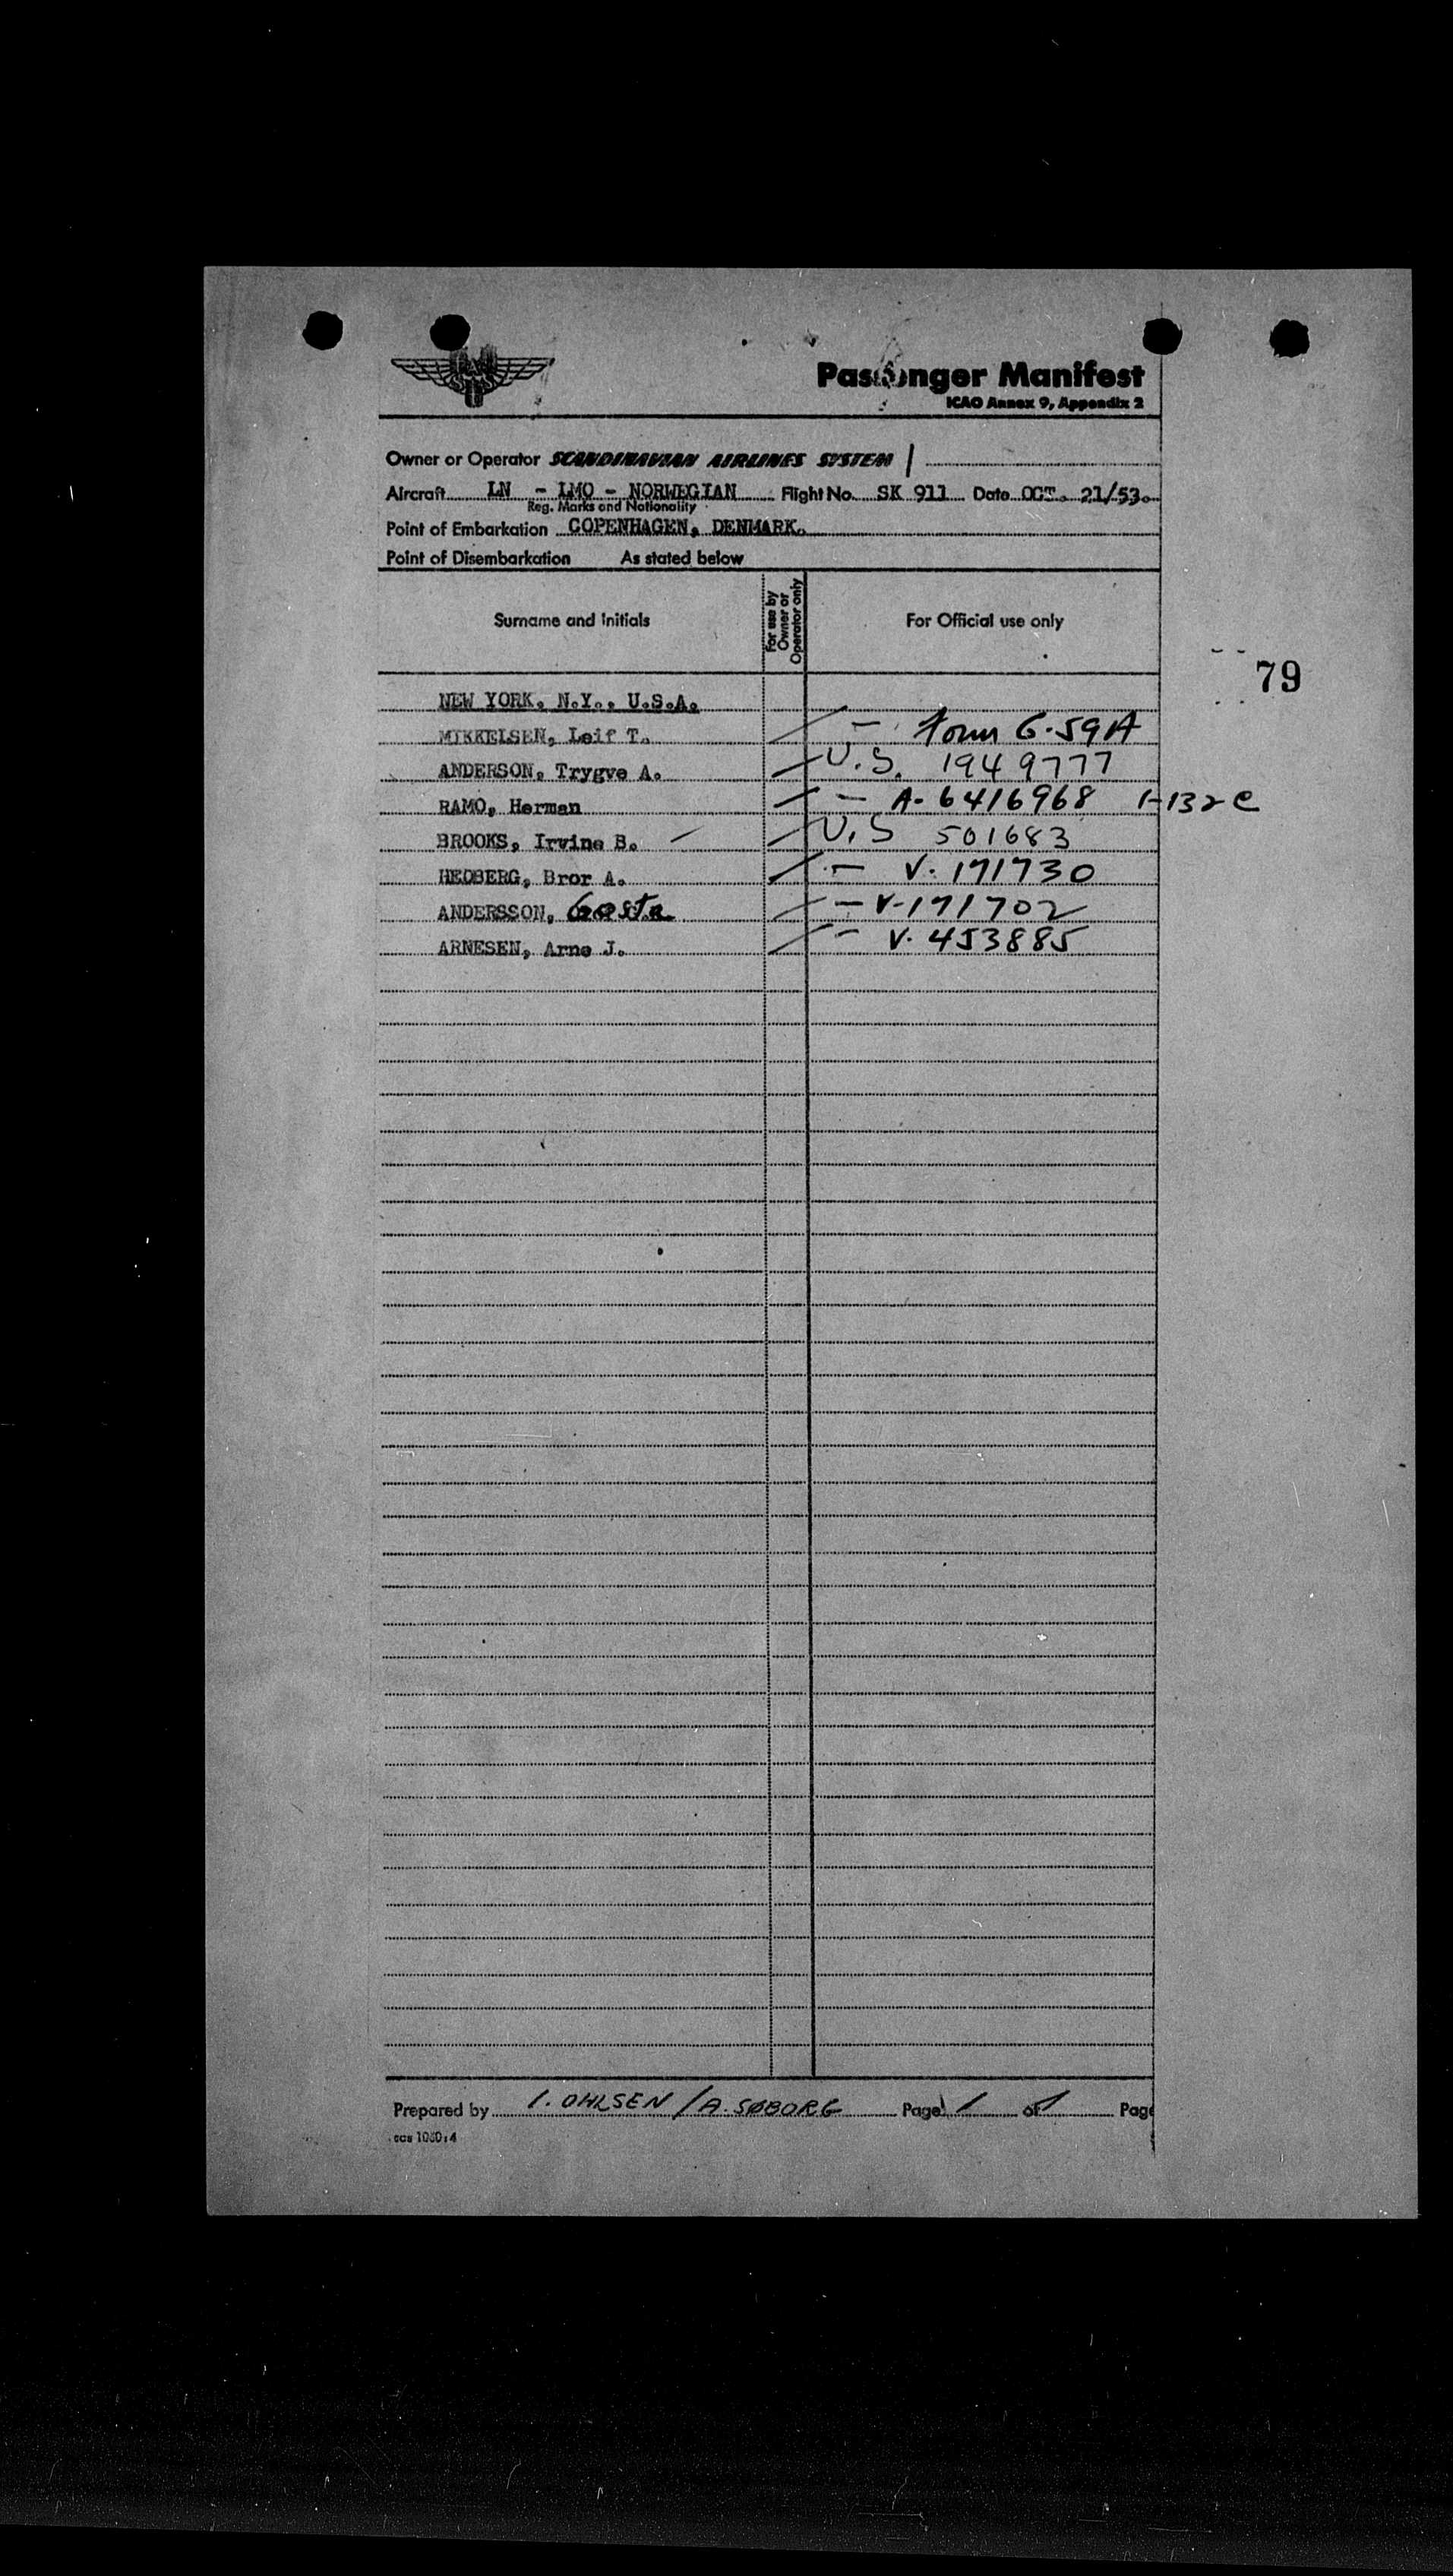 SAS
Passenger Manifest
ICAO Annex 9, Appendix 2
Owner or Operator SCANDINAVIAN AIRLINES SYSTEM /
Aircraft LN - LMO - NORWEGIAN Flight No. SK 911 Date OCT. 21/53.
Reg. Marks and Nationality
Point of Embarkation COPENHAGEN, DENMARK.
Point of Disembarkation As stated below
Surname and Initials For use by Owner or Operator only For Official use only
79
NEW YORK, N.Y., U.S.A.
MIKKELSEN, Leif T. - Form G-59A
ANDERSON, Trygve A. U.S. 1949777
RAMO, Herman - A-6416968 1-132 e
BROOKS, Irvine B. U.S 501683
HEDBERG, Bror A. - V. 171730
ANDERSSON, Gosta - V-171702
ARNESEN, Arne J. - V. 453885
Prepared by I. OHLSEN / A. SØBORG Page 1 of 1 Page